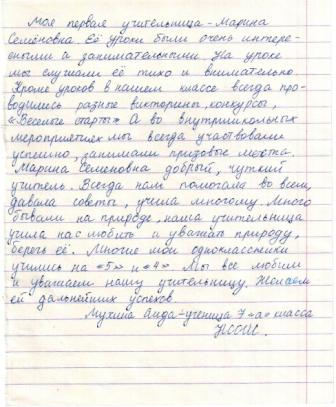 Моя первая учительница - Марина
Семёновна. Её уроки были очень интере-
сными и занимательными. На уроке
мы слушали её тихо и внимательно.
Кроме уроков в нашем классе всегда про-
водились разные викторины, конкурсы,
«Веселые старты». А во внутришкольных
мероприятиях мы всегда участвовали
успешно, занимали призовые места.
Марина Семеновна добрый, чуткий
учитель. Всегда нам помогала во всем,
давала советы, учила многому. Много
бывали на природе, наша учительница
учила нас любить и уважать природу,
беречь её. Многие мои одноклассники
учились на «5» и «4». Мы все любим
и уважаем нашу учительницу. Желаем
ей дальнейших успехов.
Мухина Аида - ученица 7 «а» класса